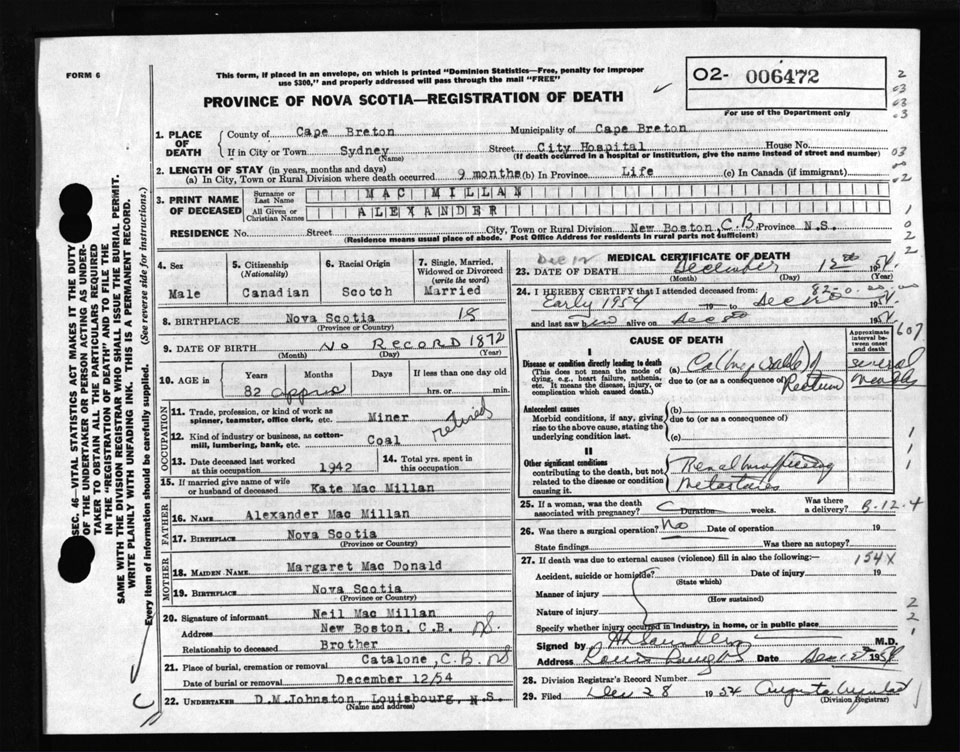 FORM 6
This form, if placed in an envelope, on which is printed "Dominion Statistics—Free, penalty for improper
use $300," and properly addressed will pass through the mail "FREE"
02- 006472
For use of the Department only
PROVINCE OF NOVA SCOTIA—REGISTRATION OF DEATH
1. PLACE OF DEATH
County of Cape Breton Municipality of Cape Breton
If in City or Town Sydney (Name) Street City Hospital House No.
(If death occurred in a hospital or institution, give the name instead of street and number)
2. LENGTH OF STAY (in years, months and days)
(a) In City, Town or Rural Division where death occurred 9 months (b) In Province Life (c) In Canada (if immigrant)
3. PRINT NAME OF DECEASED
Surname or Last Name MAC MILLAN
All Given or Christian Names ALEXANDER
RESIDENCE No. Street City, Town or Rural Division New Boston, C.B. Province N.S.
(Residence means usual place of abode. Post Office Address for residents in rural parts not sufficient)
4. Sex
Male
5. Citizenship (Nationality)
Canadian
6. Racial Origin
Scotch
7. Single, Married, Widowed or Divorced (write the word)
Married
8. BIRTHPLACE Nova Scotia 18
(Province or Country)
9. DATE OF BIRTH No Record 1872
(Month) (Day) (Year)
10. AGE in Years Months Days If less than one day old
82 approx hrs. or min.
OCCUPATION
11. Trade, profession, or kind of work as spinner, teamster, office clerk, etc. Miner retired
12. Kind of industry or business, as cotton-mill, lumbering, bank, etc. Coal
13. Date deceased last worked at this occupation 1942
14. Total yrs. spent in this occupation
15. If married give name of wife or husband of deceased Kate Mac Millan
FATHER
16. NAME Alexander Mac Millan
17. BIRTHPLACE Nova Scotia
(Province or Country)
MOTHER
18. MAIDEN NAME Margaret Mac Donald
19. BIRTHPLACE Nova Scotia
(Province or Country)
20. Signature of informant Neil Mac Millan
Address New Boston, C.B.
Relationship to deceased Brother
21. Place of burial, cremation or removal Catalone, C.B.
Date of burial or removal December 12/54
22. UNDERTAKER D.M.Johnston, Louisbourg, N.S.
(Name and address)
MEDICAL CERTIFICATE OF DEATH
Dec 12
23. DATE OF DEATH December 12th 1954
(Month) (Day) (Year)
24. I HEREBY CERTIFY that I attended deceased from:
Early 1954 19 to 1954
and last saw him alive on 1954
CAUSE OF DEATH
Approximate interval between onset and death
I
Disease or condition directly leading to death
(This does not mean the mode of dying, e.g., heart failure, asthenia, etc. It means the disease, injury, or complication which caused death.)
(a)
due to (or as a consequence of) Rectum
several months
Antecedent causes
Morbid conditions, if any, giving rise to the above cause, stating the underlying condition last.
(b)
due to (or as a consequence of)
(c)
II
Other significant conditions
contributing to the death, but not related to the disease or condition causing it.
Renal Insufficiency
Metastases
25. If a woman, was the death associated with pregnancy? Duration weeks. Was there a delivery? B-12-4
26. Was there a surgical operation? No Date of operation 19
State findings Was there an autopsy?
27. If death was due to external causes (violence) fill in also the following: 154X
Accident, suicide or homicide? Date of injury 19
(State which)
Manner of injury
(How sustained)
Nature of injury
Specify whether injury occurred in industry, in home, or in public place
Signed by M.D.
Address Date 1954
28. Division Registrar's Record Number
29. Filed Dec 28 1954 Augusta
(Division Registrar)
SEC. 46—VITAL STATISTICS ACT MAKES IT THE DUTY
OF THE UNDERTAKER OR PERSON ACTING AS UNDER-
TAKER TO OBTAIN ALL THE PARTICULARS REQUIRED
IN THE "REGISTRATION OF DEATH" AND TO FILE THE
SAME WITH THE DIVISION REGISTRAR WHO SHALL ISSUE THE BURIAL PERMIT.
WRITE PLAINLY WITH UNFADING INK. THIS IS A PERMANENT RECORD.
Every item of information should be carefully supplied. (See reverse side for instructions.)